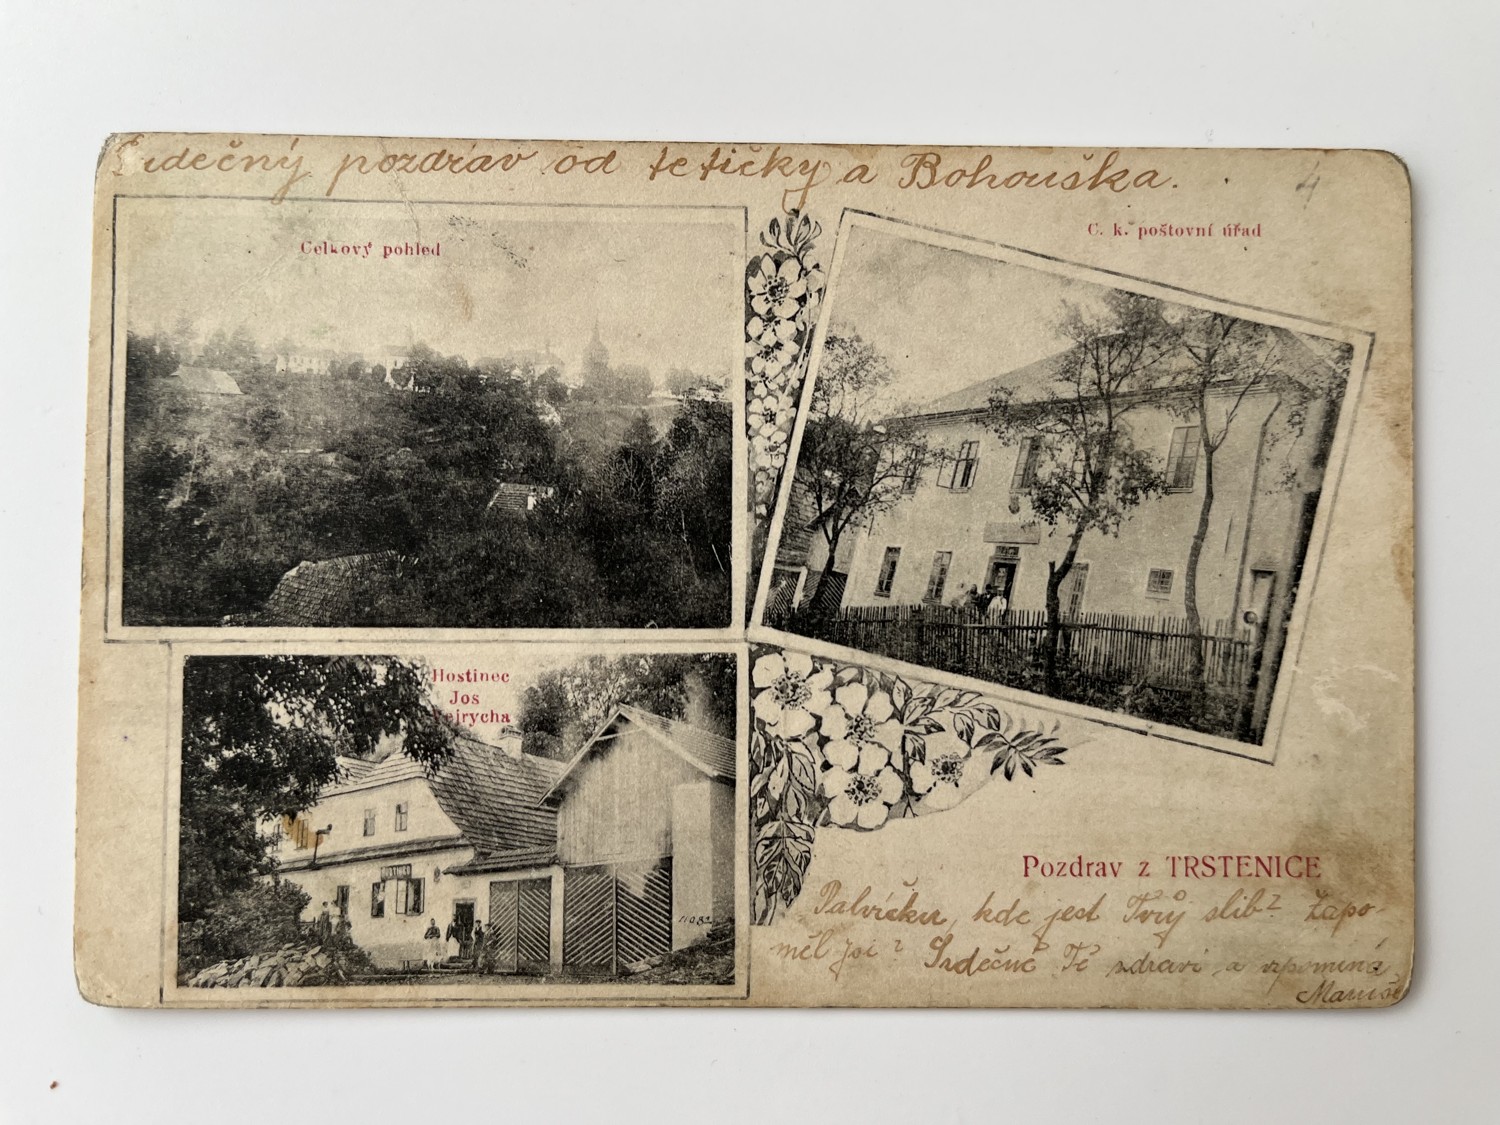 Srdečný pozdrav od tetičky a Bohouška.
4
Celkový pohled
C. k. poštovní úřad
Hostinec
Jos
Vejrycha
HOSTINEC
Pozdrav z TRSTENICE
kde jest Tvůj slib? Zapo-
měl jsi? Srdečně Tě zdraví a vzpomíná